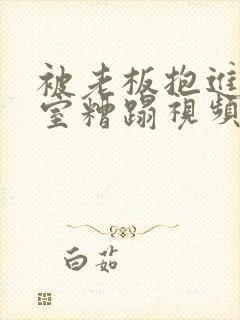 被老板抱进
室糟蹋視頻
白茹